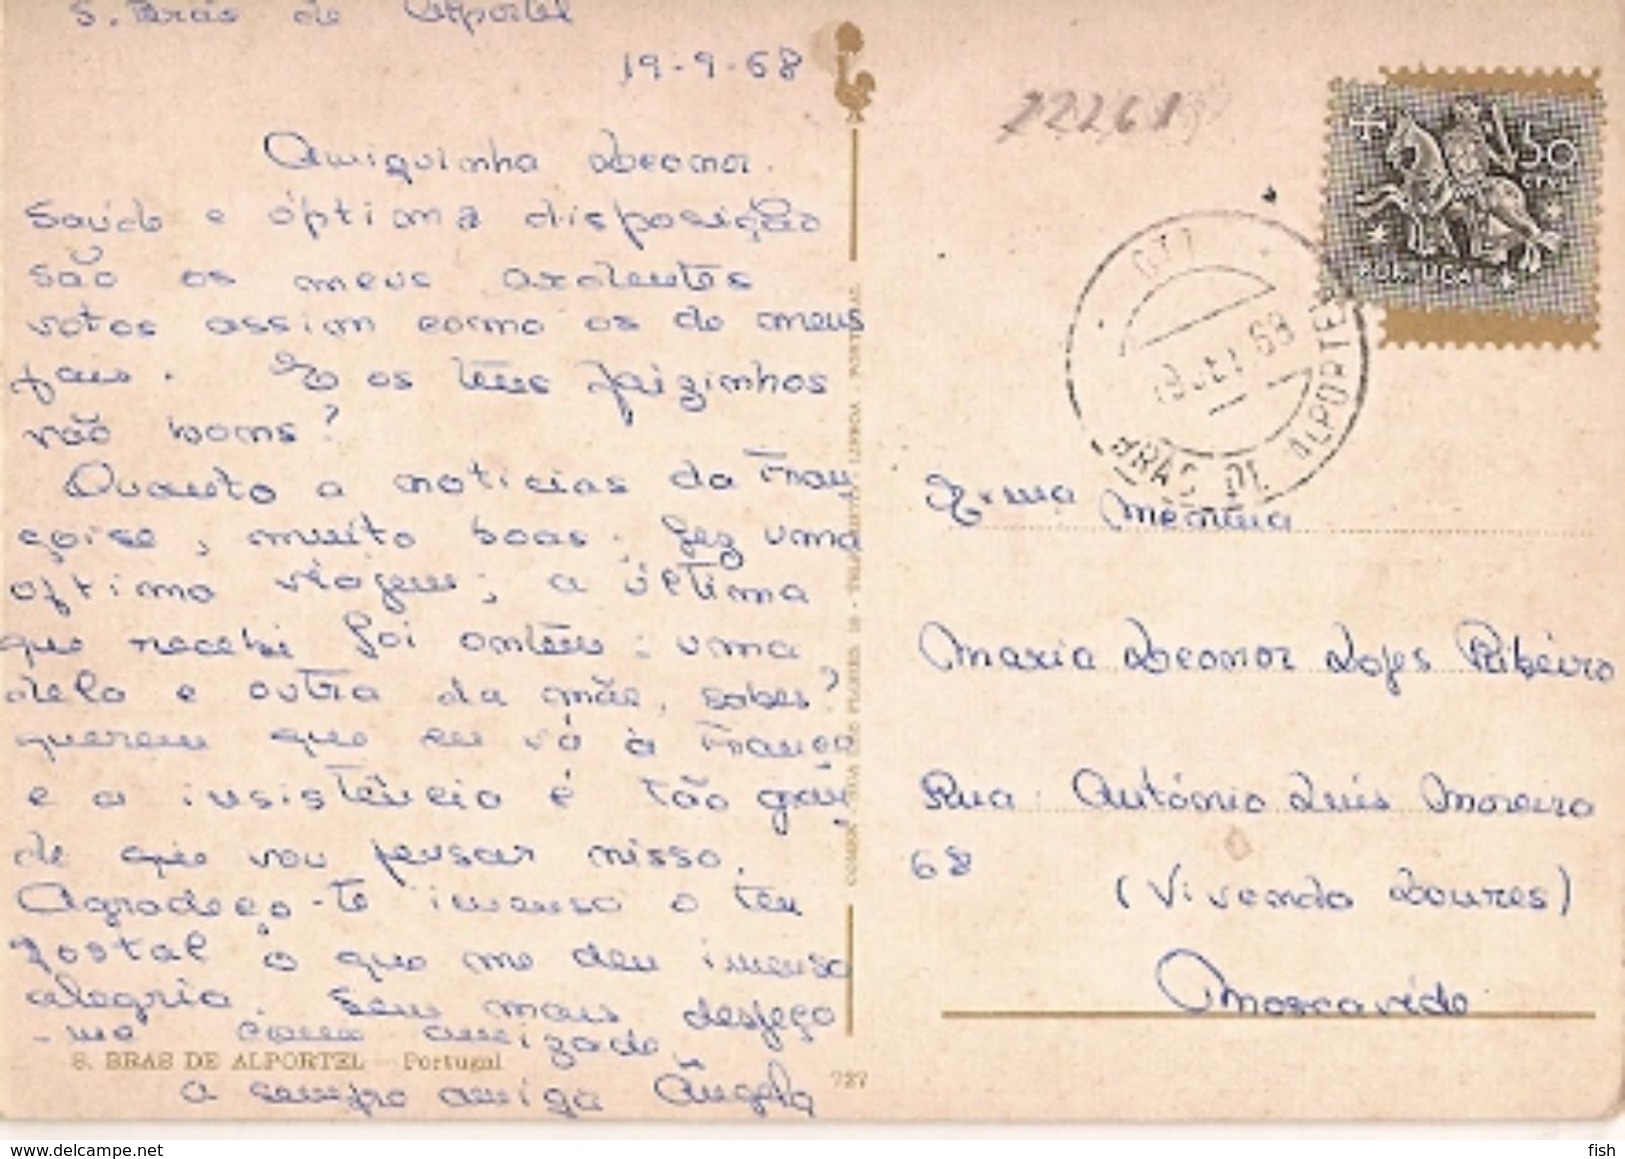 S. Brás de Alportel
19-9-68
Amiguinha Leonor.
Saúde e óptima disposição
são os meus ardentes
votos assim como os de meus
pais. E os teus paizinhos
vão bons?
Quanto a noticias da Fran
çoise, muito boas. Fez uma
optima viagem; a última
que recebi foi ontem: uma
dela e outra da mãe, sabes?
querem que eu vá à França
e a insistência é tão gran
de que vou pensar nisso.
Agradeço-te imenso o teu
postal o que me deu imensa
alegria. Sem mais despeço
-me com amizade,
a sempre amiga Ângela
S. BRAS DE ALPORTEL — Portugal
727
PORTUGAL
22261
50
CTVS
PORTUGAL
CTT
68
BRAS DE ALPORTEL
Ex.ma Menina
Maria Leonor Lopes Ribeiro
Rua António Luís Moreira
68
(Vivenda Loures)
Moscavide
fish